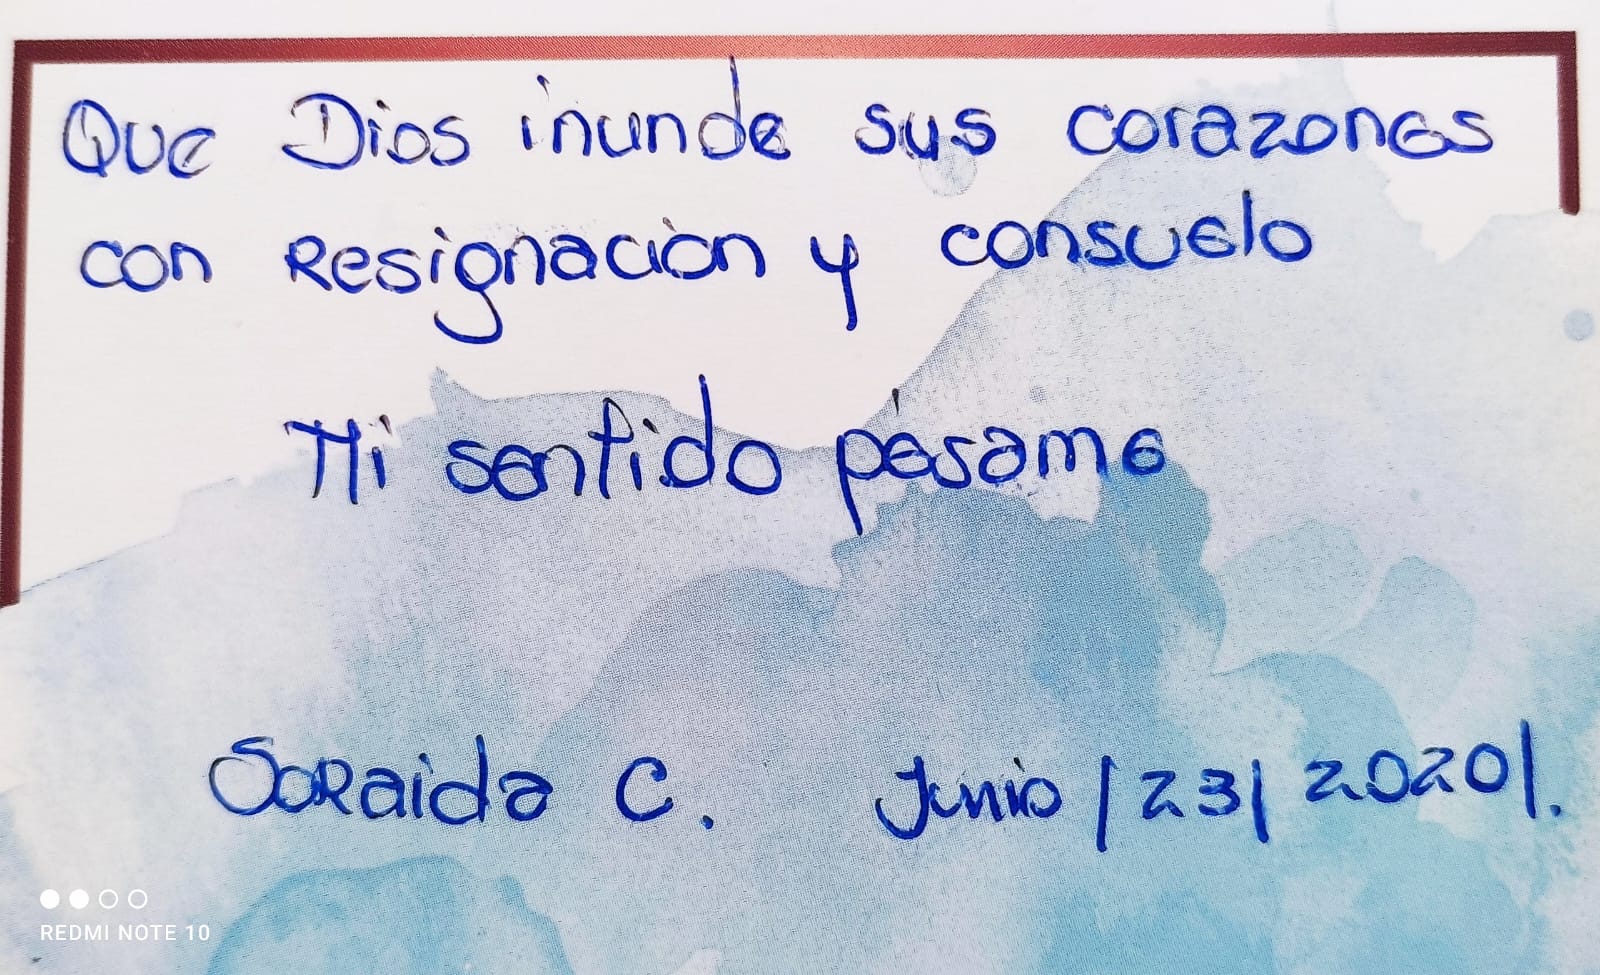 Que Dios inunde sus corazones
con Resignación y consuelo
Mi sentido pésame
Soraida C. Junio/23/2020/.
REDMI NOTE 10